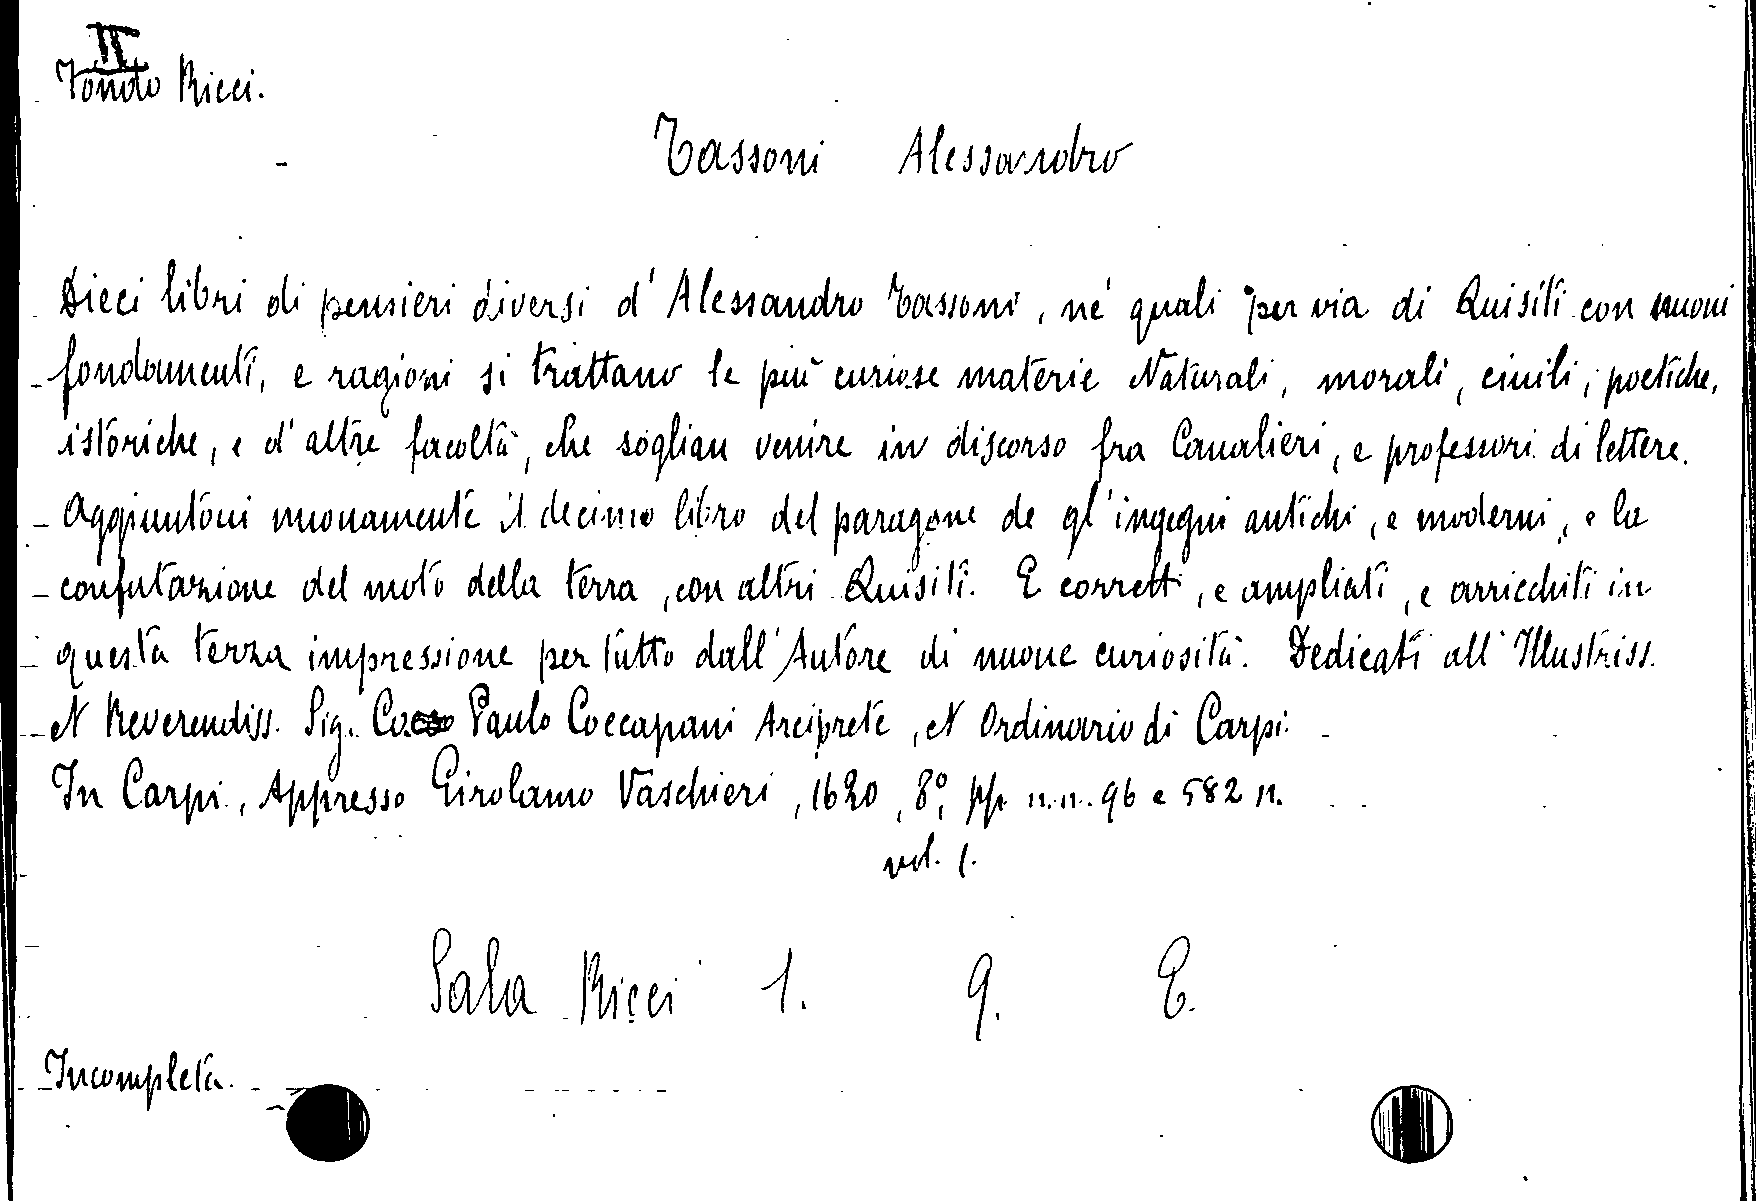 II
Fondo Ricci.
Tassoni Alessandro
Dieci libri di pensieri diversi d'Alessandro Tassoni, ne' quali per via di Quisiti con nuoui
fondamenti, e ragioni si trattano le più curiose materie Naturali, morali, ciuili, poetiche,
istoriche, e d'altre facoltà, che soglian venire in discorso fra Caualieri, e professori di lettere.
Aggiuntoui nuouamente il decimo libro del paragone de gl'ingegni antichi, e moderni, e la
confutazione del moto della terra, con altri Quisiti. E corretti, e ampliati, e arricchiti in
questa terza impressione per tutto dall'Autore di nuoue curiosità. Dedicati all'Illustriss.
et Reverendiss. Sig. Co. Paulo Coccapani Arciprete, et Ordinario di Carpi.
In Carpi, Appresso Girolamo Vaschieri, 1620, 8°, pp. n.n. 96 e 582 n.
vol. 1.
Sala Ricci 1. 9. E.
Incompleta.